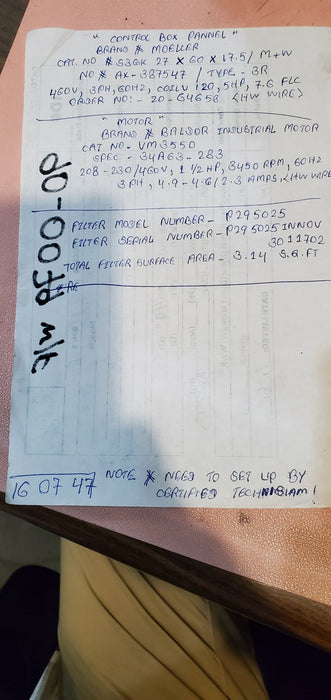 " CONTROL BOX PANNEL "
BRAND # MOELLER
CAT. NO # S3GK 27 X 60 X 17.5 / M+W
NO # AX-387547 / TYPE - 3R
460V, 3PH, 60HZ, COILV 120, 5HP, 7.6 FLC
ORDER NO: - 20-64658 (HW WIRE)
" MOTOR "
BRAND # BALDOR INDUSTRIAL MOTOR
CAT NO - VM3550
SPEC - 34A63-283
208-230/460V, 1 1/2 HP, 3450 RPM, 60HZ
3PH, 4.9-4.6/2.3 AMPS (HW WIRE
FILTER MODEL NUMBER - P295025
FILTER SERIAL NUMBER - P295025INNOV
3011702
TOTAL FILTER SURFACE AREA - 3.14 S.Q.FT
NOTE * NEED TO SET UP BY
CERTIFIED TECHNISIAM!
16 07 47